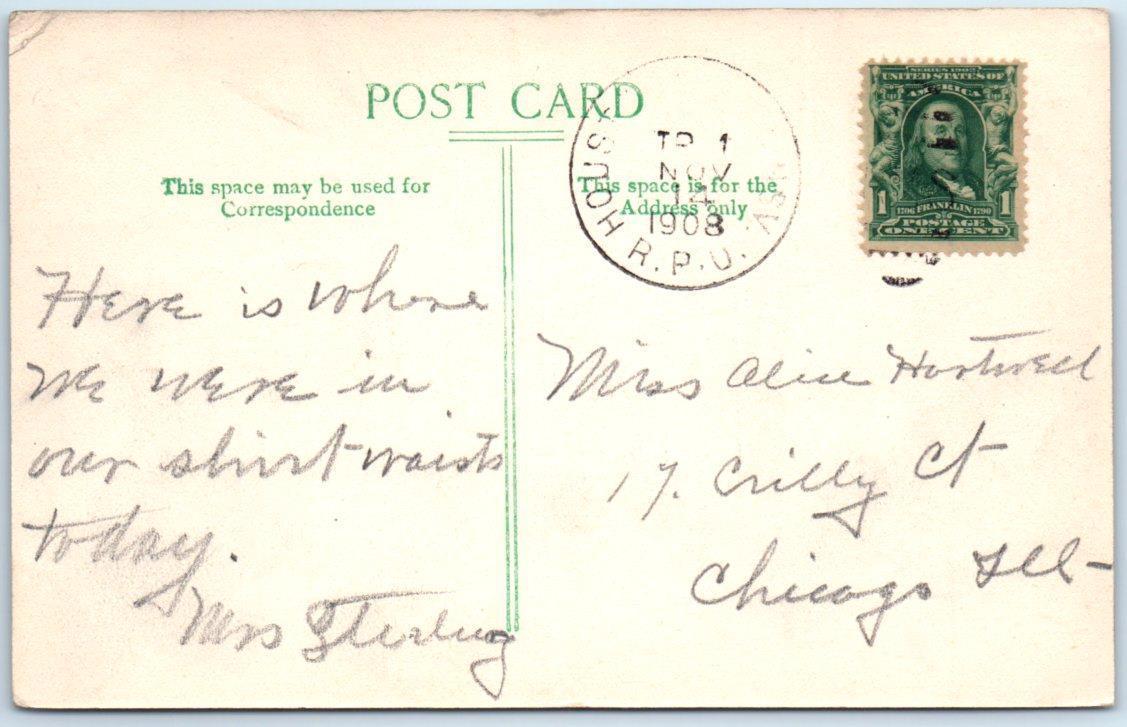 POST CARD
This space may be used for
Correspondence
This space is for the
Address only
TR 1
NOV
14
1908
HOUS
R.P.O.
SERIES 1902
UNITED STATES OF
AMERICA
1 1
1706 FRANKLIN 1790
POSTAGE
ONE CENT
Here is where
we were in
our shirt waists
today.
Mrs Sterling
Miss Alice Hartwell
17. Crilly Ct
Chicago Ill-